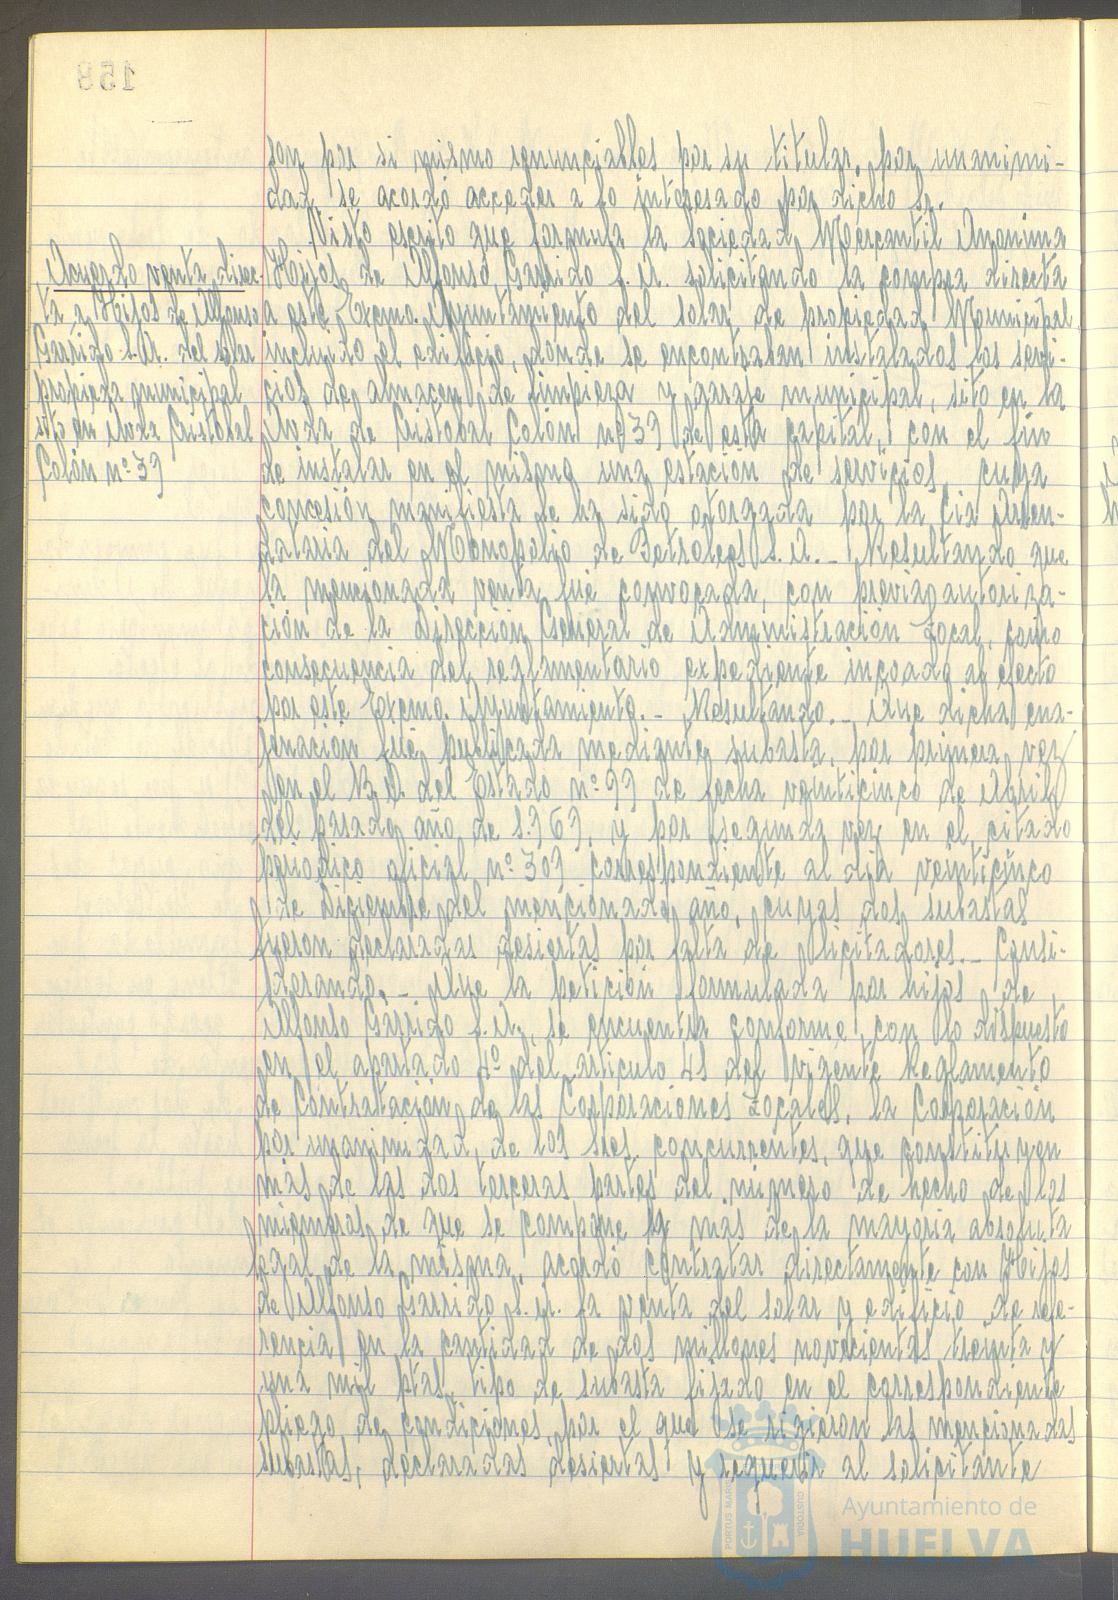 158
son por si mismo renunciables por su titular, por unanimi-
dad, se acordó acceder a lo interesado por dicho Sr.
Visto escrito que formula la Sociedad Mercantil Anonima
Acuerdo venta direc-
ta a Hijos de Alfonso
Garrido S.A. del solar
propieda municipal
sito en Avda Cristobal
Colón nº 37
Hijos de Alfonso Garrido S.A. solicitando la compra directa
a este Excmo. Ayuntamiento del solar de propiedad Municipal,
incluido el edificio, donde se encontraban instalados los servi-
cios de almacen de limpieza y garaje municipal, sito en la
Avda de Cristobal Colón nº 37 de esta capital, con el fin
de instalar en el mismo una estación de servicios, cuya
concesión manifiesta le ha sido otorgada por la Cia Arren-
dataria del Monopolio de Petroleos S.A. - Resultando que
la mencionada venta fué convocada, con previa autoriza-
ción de la Dirección General de Administración Local, como
consecuencia del reglamentario expediente incoado al efecto
por este Excmo. Ayuntamiento. - Resultando. - Que dicha ena-
jenación fué publicada mediante subasta, por primera vez
en el B.O. del Estado nº 99 de fecha veinticinco de Abril
del pasado año de 1.969, y por segunda vez en el citado
periodico oficial nº 309 correspondiente al dia veinticinco
de Diciembre del mencionado año, cuyas dos subastas
fueron declaradas desiertas por falta de licitadores. - Consi-
derando. - Que la petición formulada por hijos de
Alfonso Garrido S.A., se encuentra conforme con lo dispuesto
en el apartado 4º del articulo 41 del vigente Reglamento
de Contratación de las Corporaciones Locales, la Corporación
por unanimidad, de los Sres. concurrentes, que constituyen
más de las dos terceras partes del número de hecho de los
miembros de que se compone y más de la mayoria absoluta
legal de la misma, acordó contratar directamente con Hijos
de Alfonso Garrido S.A. la venta del solar y edificio de refe-
rencia en la cantidad de dos millones novecientas treinta y
una mil ptas, tipo de subasta fijado en el correspondiente
pliego de condiciones por el que se rigieron las mencionadas
subastas, declaradas desiertas y requerir al solicitante
PORTUS MARIS
CUSTODIA
Ayuntamiento de
HUELVA